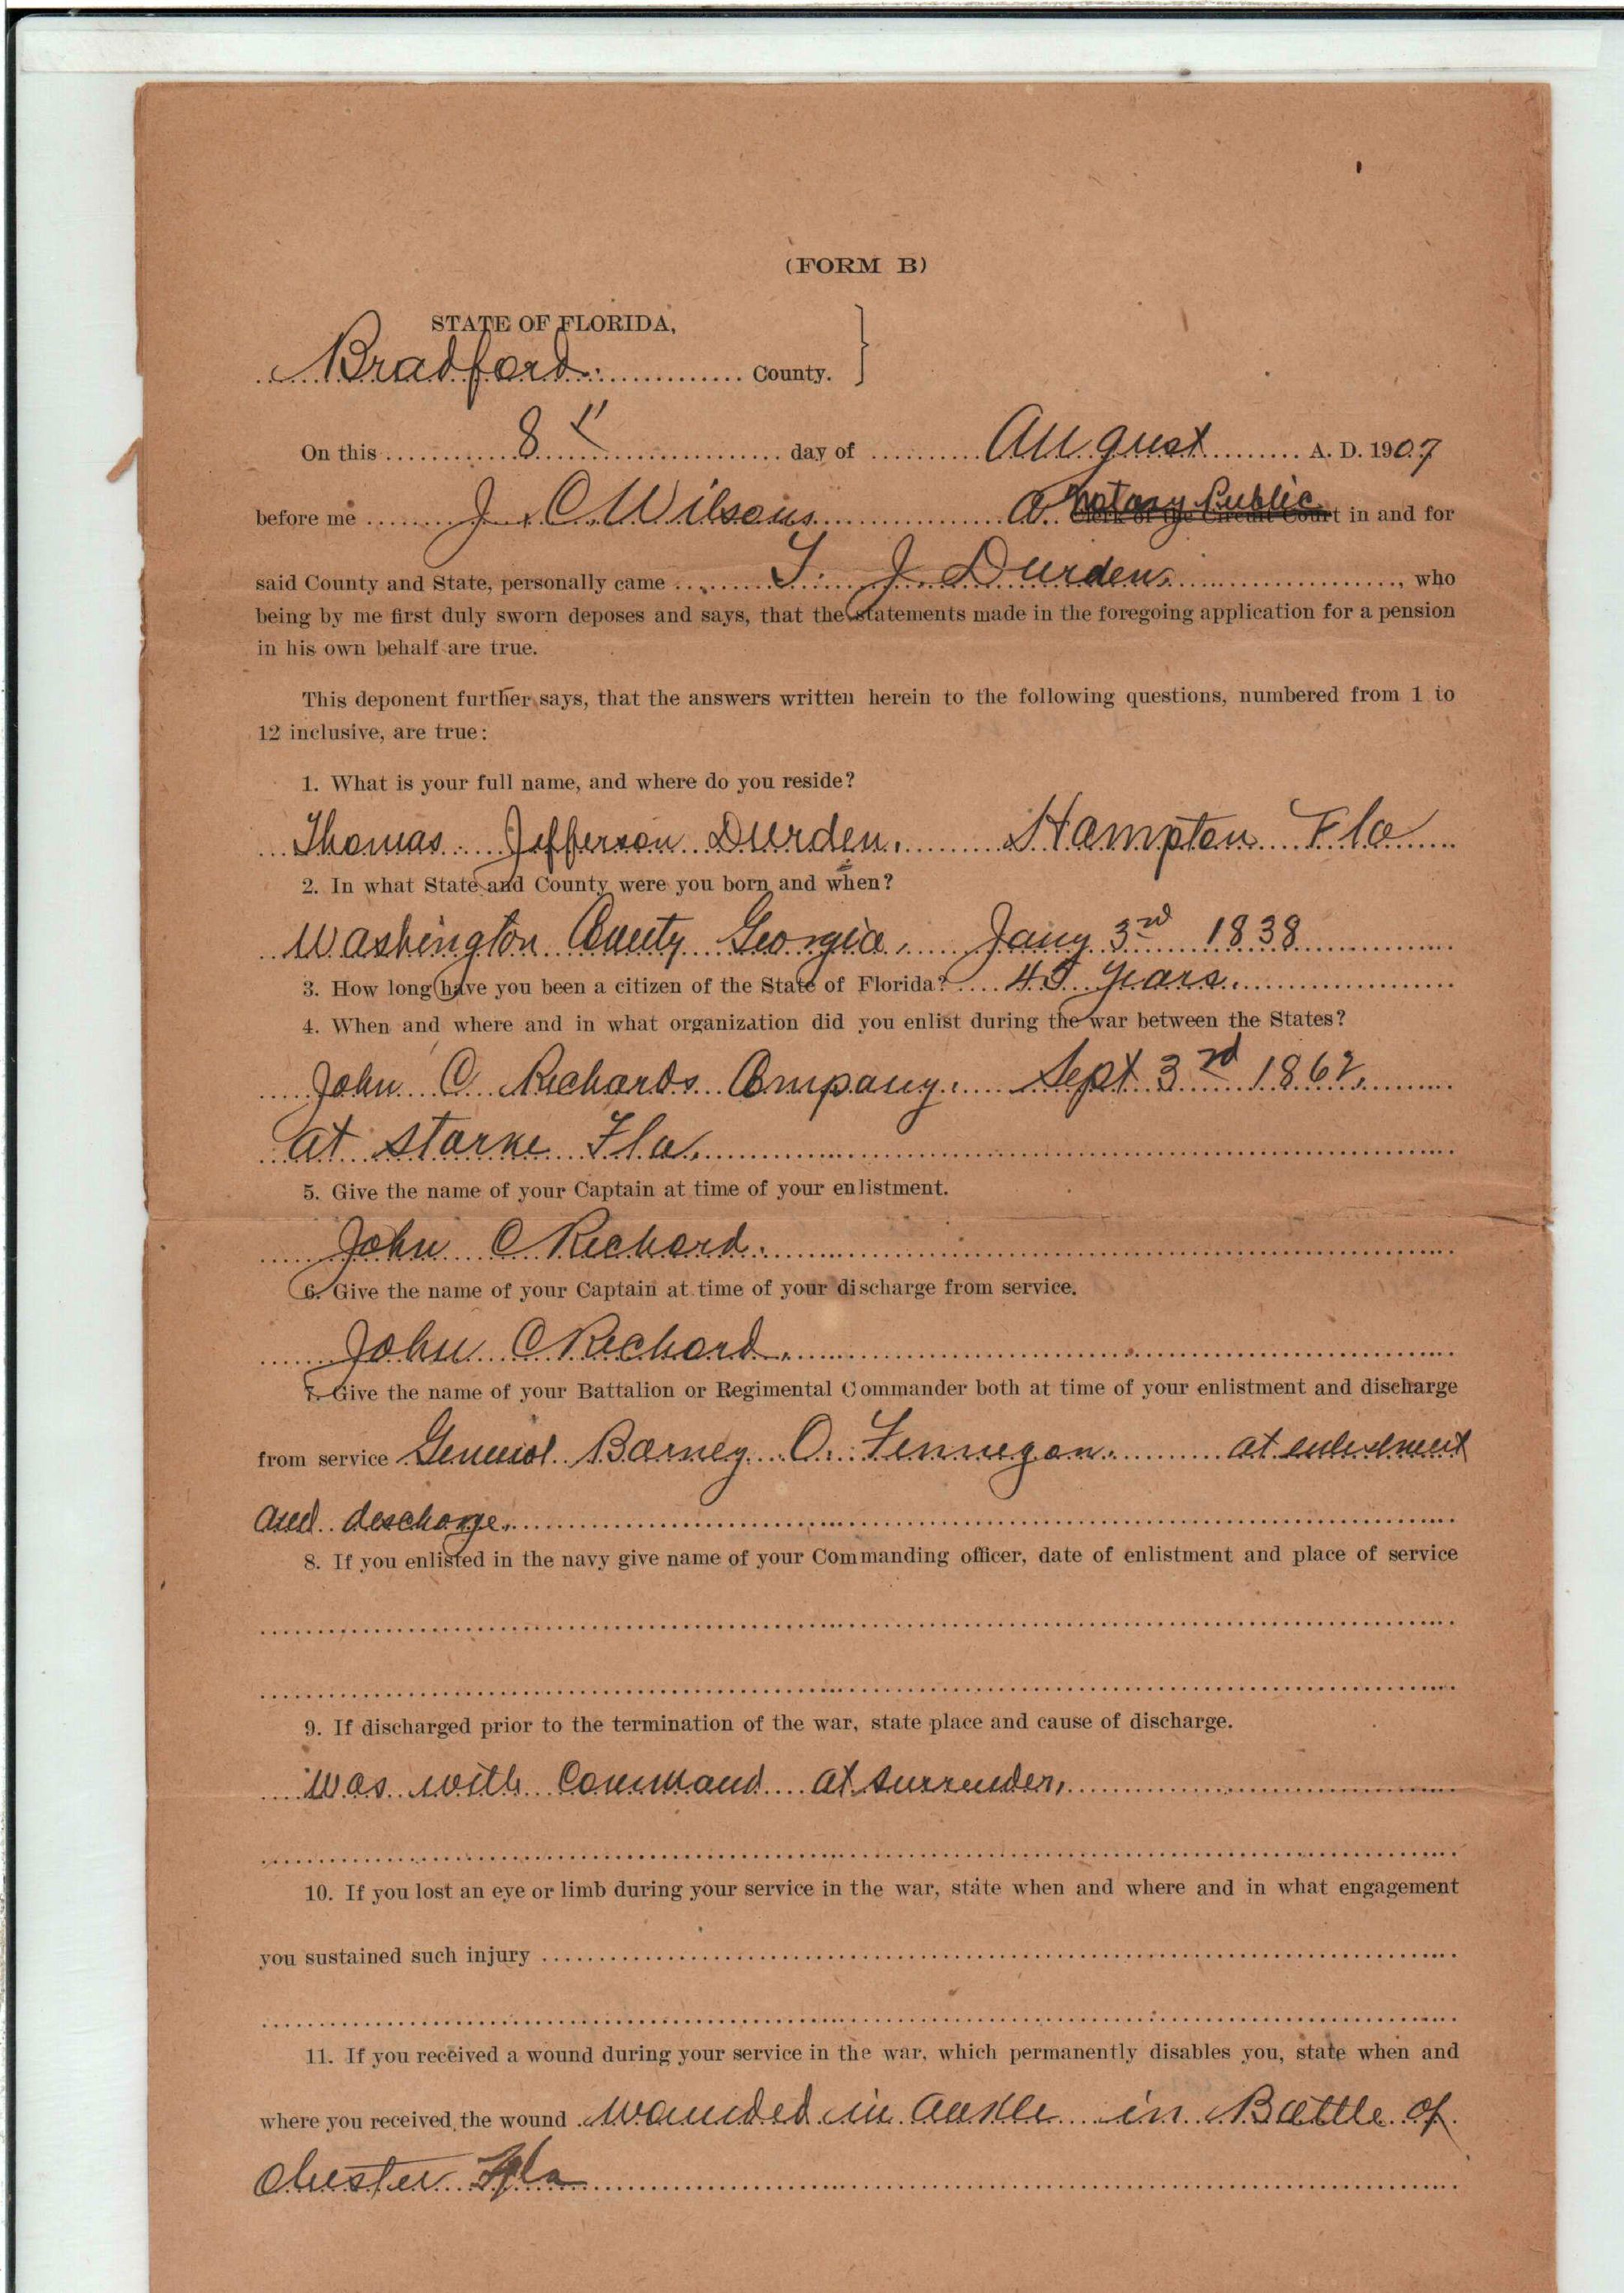 (FORM B)
STATE OF FLORIDA,
Bradford County.
On this 8" day of August A. D. 1907
before me J. C. Wilson a Notary Public Clerk of the Circuit Court in and for
said County and State, personally came T. J. Durden, who
being by me first duly sworn deposes and says, that the statements made in the foregoing application for a pension
in his own behalf are true.
This deponent further says, that the answers written herein to the following questions, numbered from 1 to
12 inclusive, are true:
1. What is your full name, and where do you reside?
Thomas Jefferson Durden. Hampton Fla
2. In what State and County were you born and when?
Washington County Georgia, Jany 3rd 1838
3. How long have you been a citizen of the State of Florida? 45 years.
4. When and where and in what organization did you enlist during the war between the States?
John C Richards Company. Sept 3rd 1862.
at Starke Fla.
5. Give the name of your Captain at time of your enlistment.
John C Richard.
6. Give the name of your Captain at time of your discharge from service.
John C Richard.
7. Give the name of your Battalion or Regimental Commander both at time of your enlistment and discharge
from service General Barney O. Fennegan. at enlistment
and descharge.
8. If you enlisted in the navy give name of your Commanding officer, date of enlistment and place of service
9. If discharged prior to the termination of the war, state place and cause of discharge.
Was with Command at surrender,
10. If you lost an eye or limb during your service in the war, state when and where and in what engagement
you sustained such injury
11. If you received a wound during your service in the war, which permanently disables you, state when and
where you received the wound wounded in ankle in Battle of
Chester Fla